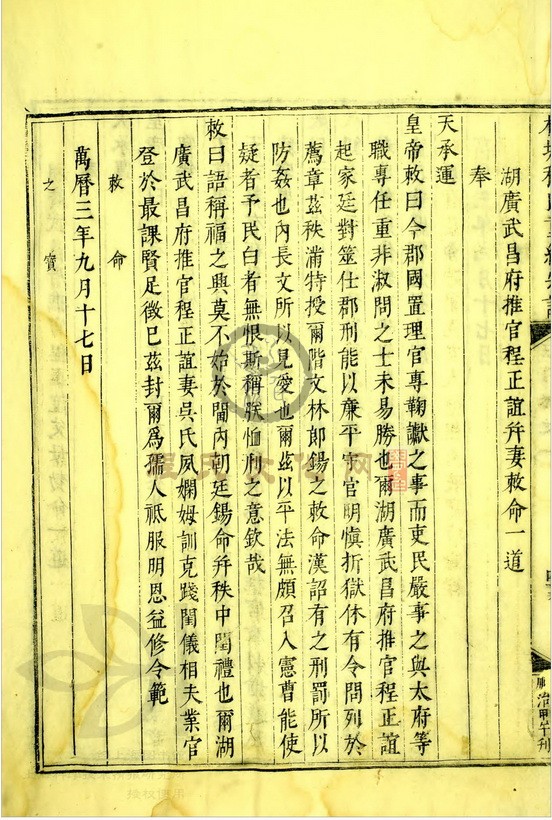 湖廣武昌府推官程正誼并妻敕命一道
奉
天承運
皇帝敕曰今郡國置理官專鞫讞之事而吏民嚴事之與太府等
職專任重非淑問之士未易勝也爾湖廣武昌府推官程正誼
起家廷對筮仕郡刑能以廉平守官明慎折獄休有令問列於
薦章茲秩滿特授爾階文林郎錫之敕命漢詔有之刑罰所以
防姦也內長文所以見愛也爾茲以平法無頗召入憲曹能使
疑者予民白者無恨斯稱朕恤刑之意欽哉
敕曰語稱福之興莫不始於閫內朝廷錫命并秩中閨禮也爾湖
廣武昌府推官程正誼妻吳氏夙嫻姆訓克踐閨儀相夫業官
登於最課賢足徵已茲封爾為孺人祇服明恩益修令範
敕命
萬曆三年九月十七日
之寶
治甲午刊
授权使用